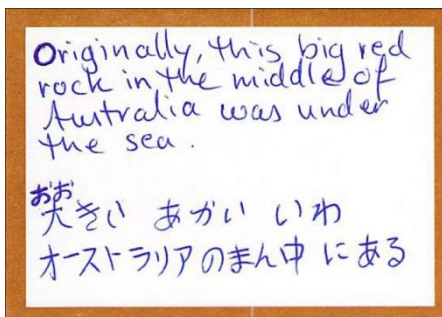 Originally, this big red
rock in the middle of
Australia was under
the sea.
おお
大きい あかい いわ
オーストラリアのまん中 にある